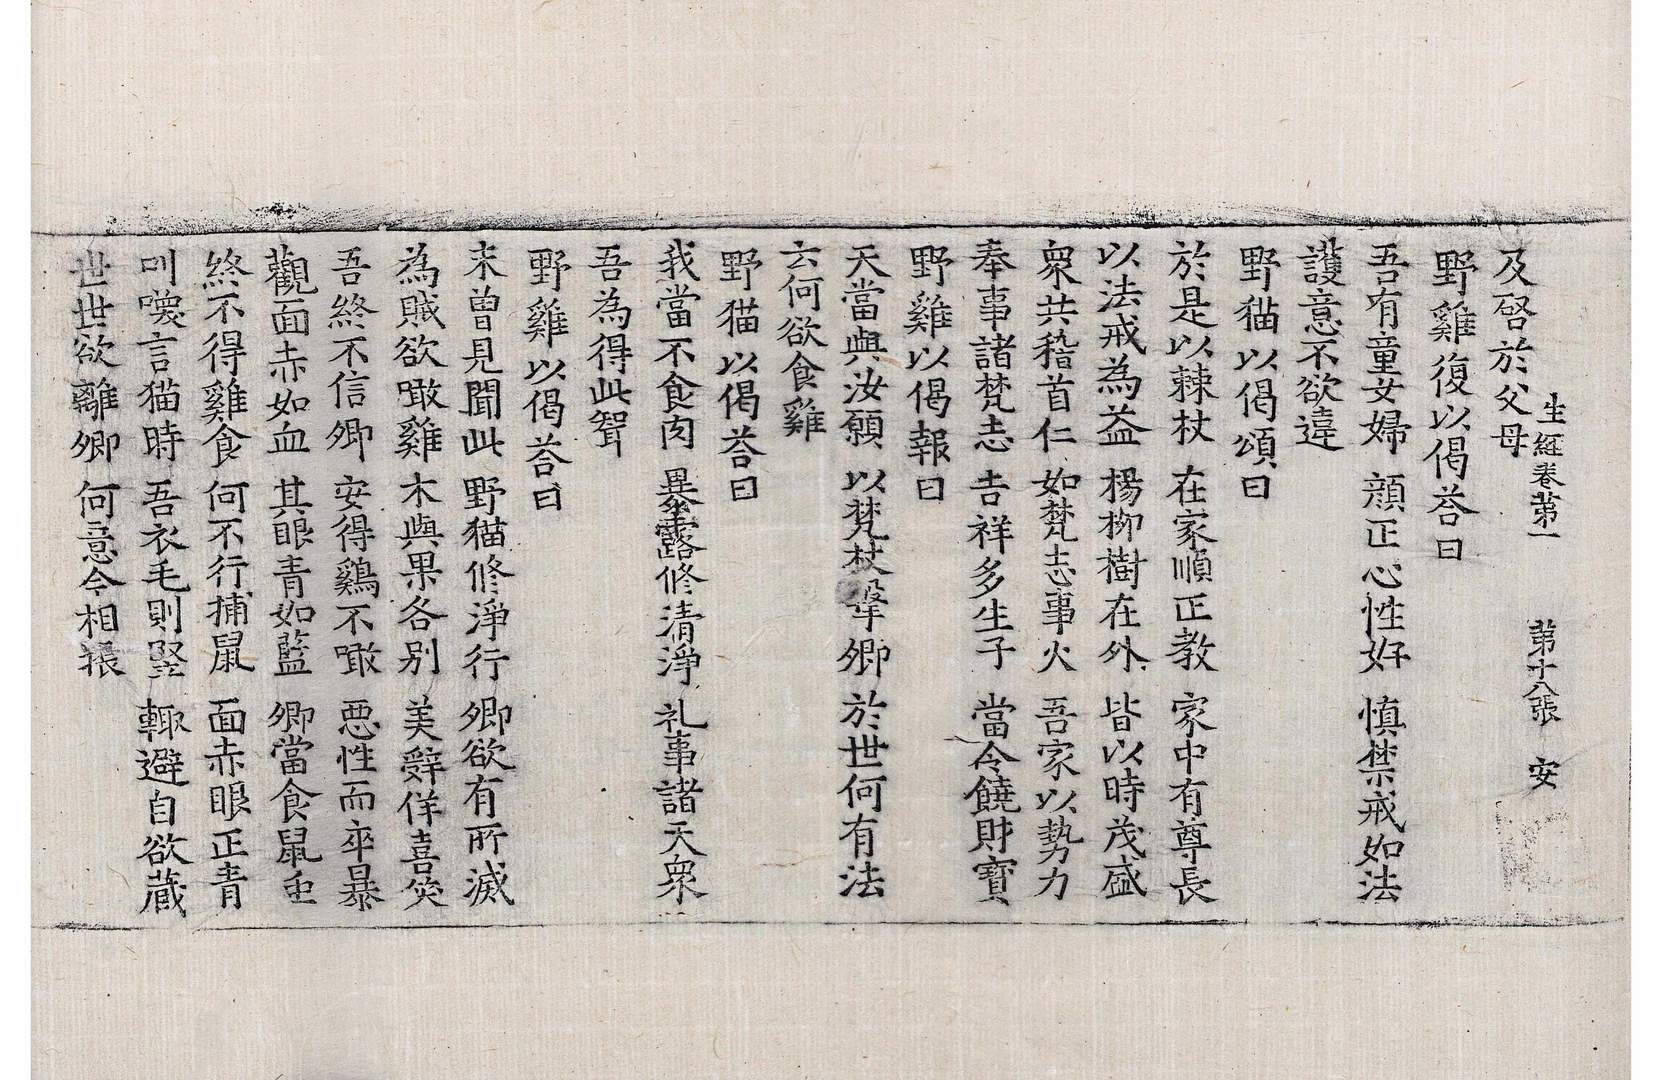 生經卷苐一　苐十八張　安
及啓於父母
野雞復以偈荅曰
吾有童女婦　顔正心性好　慎禁戒如法
護意不欲違
野猫以偈頌曰
於是以棘杖　在家順正教　家中有尊長
以法戒為益　楊柳樹在外　皆以時茂盛
衆共稽首仁　如梵志事火　吾家以勢力
奉事諸梵志　吉祥多生子　當令饒財寶
野雞以偈報曰
天當與汝願　以梵杖擊卿　於世何有法
云何欲食雞
野猫以偈荅曰
我當不食肉　暴露修清淨　礼事諸天衆
吾為得此聟
野雞以偈荅曰
未曽見聞此　野猫修淨行　卿欲有所滅
為賊欲噉雞　木與果各別　美辤佯喜笑
吾終不信卿　安得鷄不噉　惡性而卒暴
觀面赤如血　其眼青如藍　卿當食鼠虫
終不得雞食　何不行捕鼠　面赤眼正青
叫喚言猫時　吾衣毛則竪　輙避自欲蔵
世世欲離卿　何意今相振